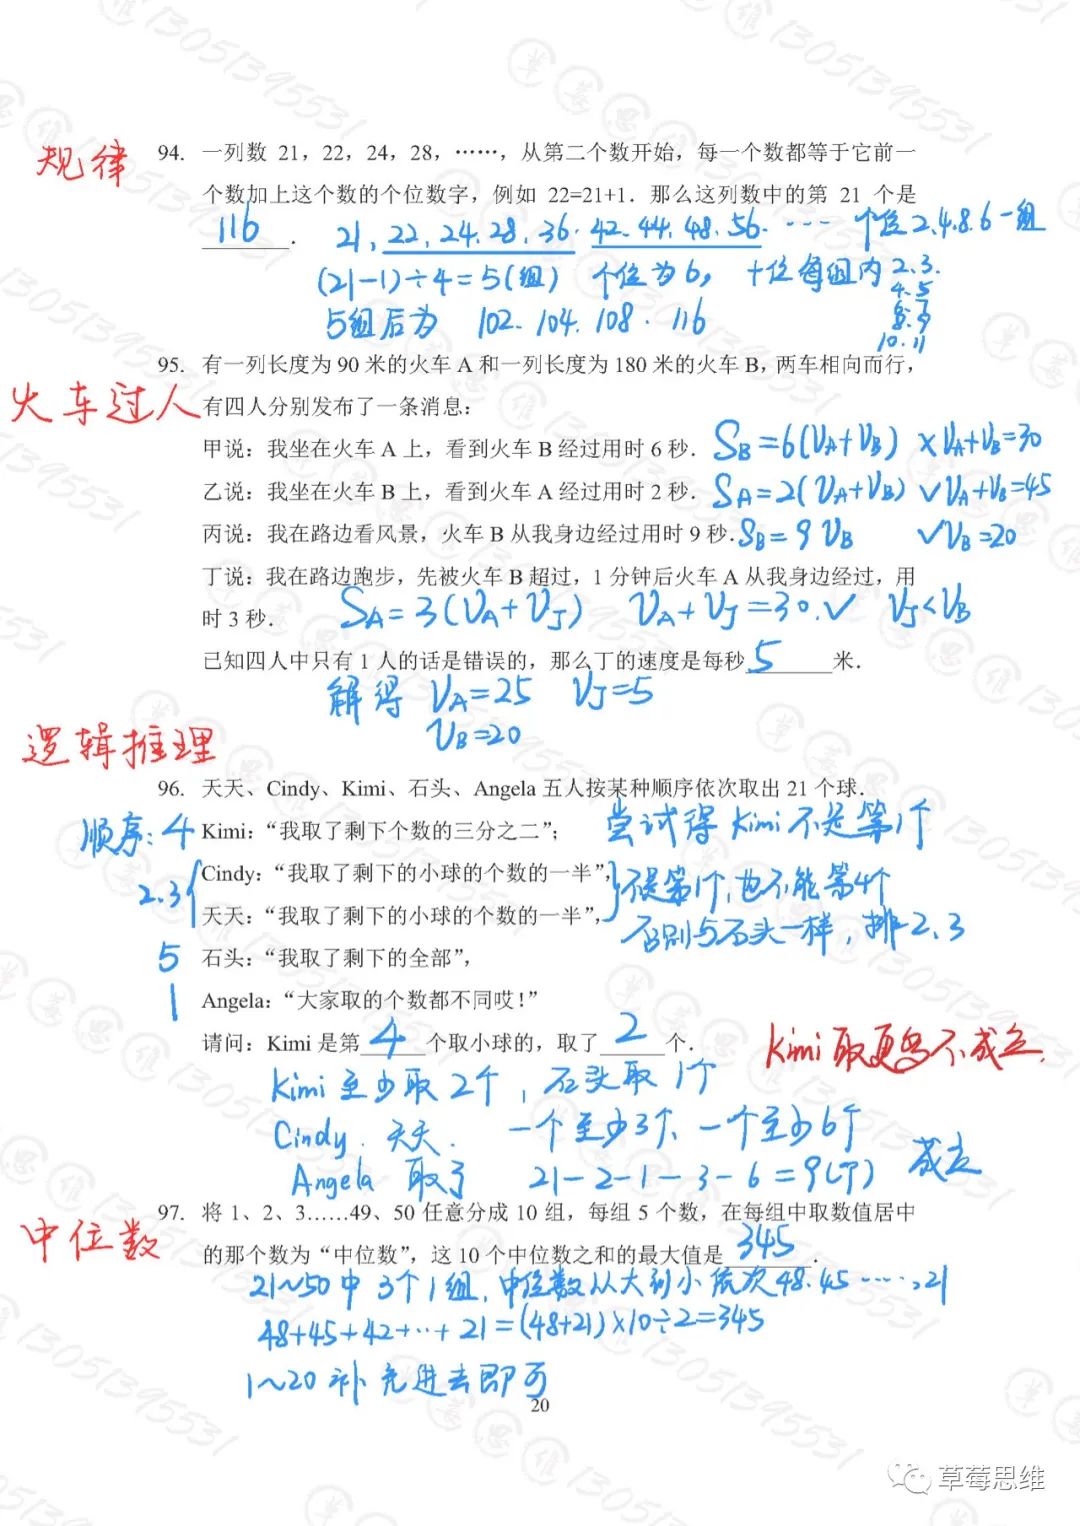 规律
94. 一列数 21，22，24，28，……，从第二个数开始，每一个数都等于它前一
个数加上这个数的个位数字，例如 22=21+1．那么这列数中的第 21 个是
116．
21, 22, 24. 28, 36. 42. 44. 48. 56. ···· 个位2.4.8.6一组
(21-1)÷4=5(组) 个位为6, 十位每组内 2.3.
4.5
6.7
8.9
10.11
5组后为 102. 104. 108. 116
95. 有一列长度为 90 米的火车 A 和一列长度为 180 米的火车 B，两车相向而行，
火车过人
有四人分别发布了一条消息：
甲说：我坐在火车 A 上，看到火车 B 经过用时 6 秒． SB=6(VA+VB) ×VA+VB=30
乙说：我坐在火车 B 上，看到火车 A 经过用时 2 秒． SA=2(VA+VB) ✓VA+VB=45
丙说：我在路边看风景，火车 B 从我身边经过用时 9 秒．SB=9VB ✓VB=20
丁说：我在路边跑步，先被火车 B 超过，1 分钟后火车 A 从我身边经过，用
时 3 秒． SA=3(VA+VJ) VA+VJ=30.✓ VJ<VB
已知四人中只有 1 人的话是错误的，那么丁的速度是每秒 5 米．
解得 VA=25 VJ=5
VB=20
逻辑推理
96. 天天、Cindy、Kimi、石头、Angela 五人按某种顺序依次取出 21 个球．
顺序: 4 Kimi：“我取了剩下个数的三分之二”； 尝试得 Kimi不是第1个
2.3 Cindy：“我取了剩下的小球的个数的一半”， 不是第1个, 也不能第4个
天天：“我取了剩下的小球的个数的一半”， 否则与石头一样, 排2、3
5 石头：“我取了剩下的全部”，
1 Angela：“大家取的个数都不同哎！”
请问：Kimi 是第 4 个取小球的，取了 2 个．
Kimi取更多不成立.
Kimi 至少取 2个, 石头取 1个
Cindy. 天天. 一个至少3个、一个至少6个
Angela 取了 21-2-1-3-6=9(个) 成立
97. 将 1、2、3……49、50 任意分成 10 组，每组 5 个数，在每组中取数值居中
中位数
的那个数为“中位数”，这 10 个中位数之和的最大值是 345．
21~50中 3个1组, 中位数从大到小依次48.45 ····,21
48+45+42+··+21=(48+21)×10÷2=345
1~20 补充进去即可
20
草莓思维